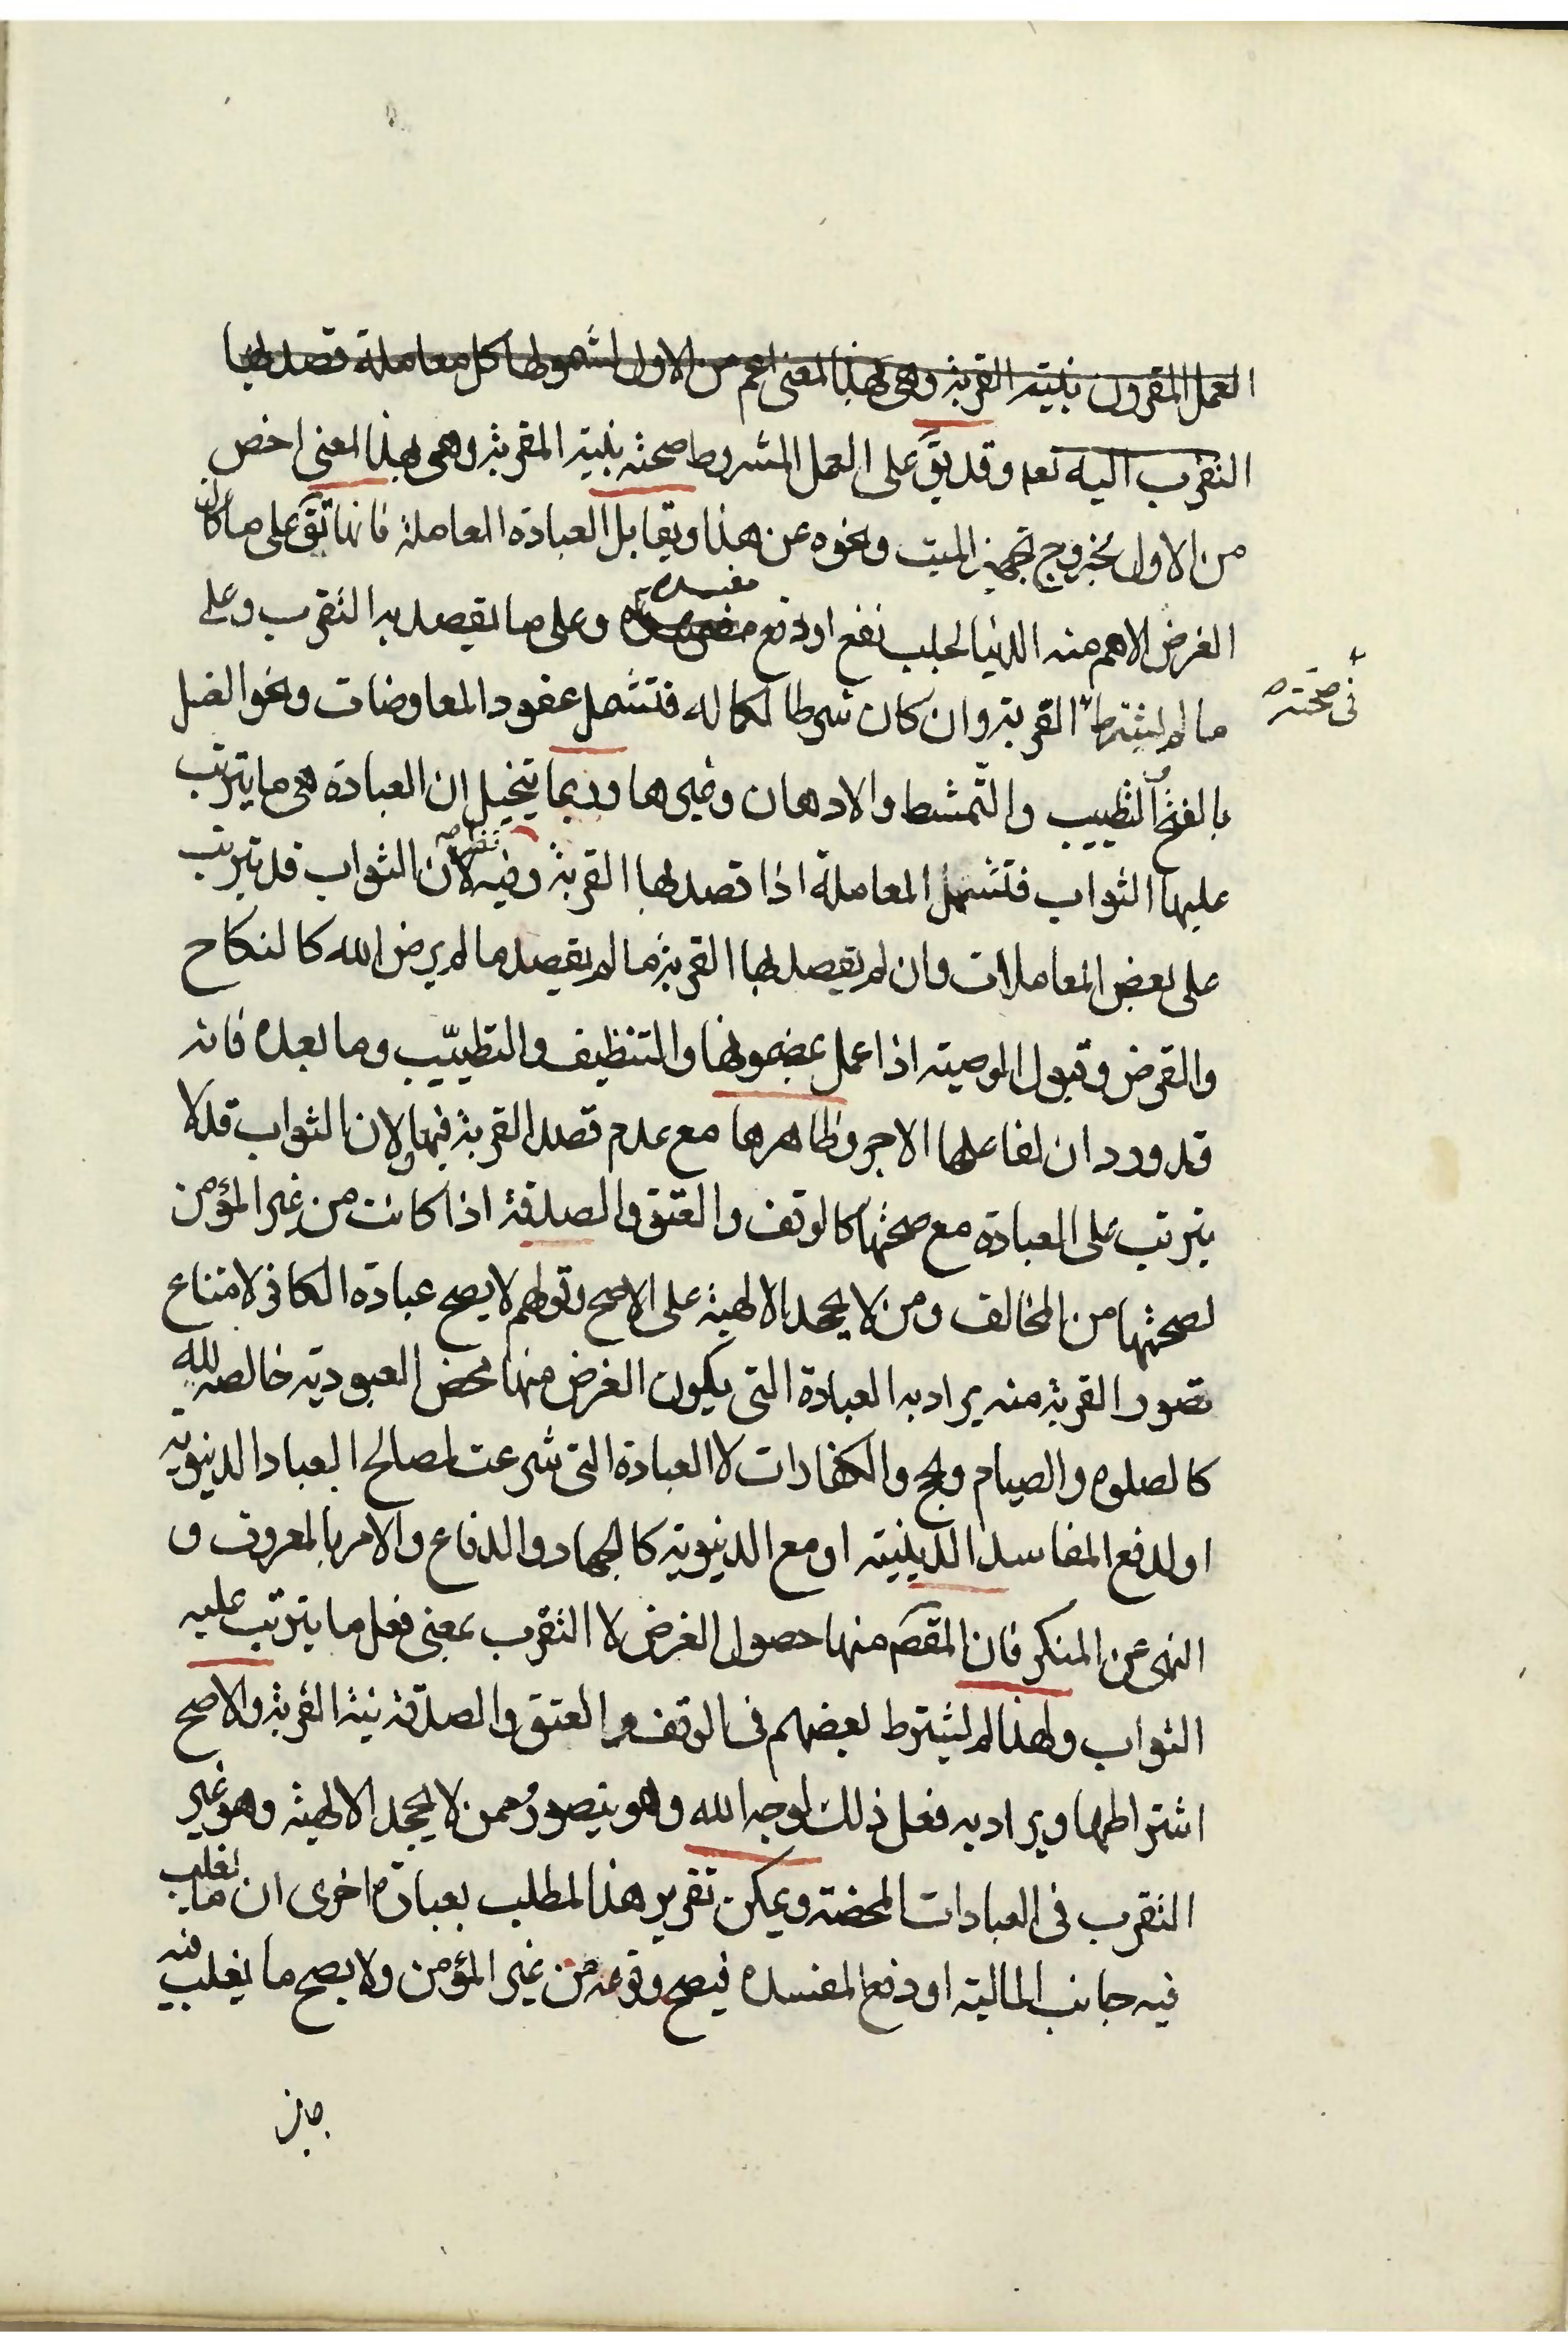 العمل المقرون بنية القربة وهى بهذا المعنى اعم من الاول لشمولها كل معاملة قصد بها
التقرب اليه تعه وقد يق على العمل المشروط صحته بنية المقربة وهى بهذا المعنى اخص
من الاول بخروج تجهيز الميت ونحوه عن هذا ويقابل العبادة المعاملة فانها تق على ما كان
الغرض الاهم منه الدنيا لجلب نفع او دفع مفسدة وعلى ما يقصد به التقرب وعلى
ما لم يشترط القربة وان كان شرطا لكماله فتشمل عقود المعاوضات ونحو الغسل
فى صحته
بالفتح والتطييب والتمشط والادهان وغيرها وربما يتخيل ان العبادة هى ما يترتب
عليها الثواب فتشمل المعاملة اذا قصد بها القربة وفيه نظر لان الثواب قد يترتب
على بعض المعاملات وان لم يقصد بها القربة ما لم يقصد ما لم يرض الله كالنكاح
والقرض وقبول الوصية اذا عمل بمضمونها والتنظيف والتطييب وما بعده فانه
قد ورد ان لفاعلها الاجر وظاهرها مع عدم قصد القربة فيها ولان الثواب قد لا
يترتب على العبادة مع صحتها كالوقف والعتق والصدقة اذا كانت من غير المؤمن
لصحتها من المخالف ومن لا يجحد الالهية على الاصح وقولهم لا يصح عبادة الكافر لامتناع
تصور القربة منه يراد به العبادة التى يكون الغرض منها محض العبودية خالصه لله
كالصلوة والصيام والحج والكفارات لا العبادة التى شرعت لمصالح العباد الدنيوية
او لدفع المفاسد الدينية او مع الدنيوية كالجهاد والدفاع والامر بالمعروف و
النهى عن المنكر فان المقصم منها حصول الغرض لا التقرب بمعنى فعل ما يترتب عليه
الثواب ولهذا لم يشترط بعضهم فى الوقف والعتق والصدقة نية القربة والاصح
اشتراطها ويراد به فعل ذلك لوجه الله وهو يتصور ممن لا يجحد الالهية وهو غير
التقرب فى العبادات المحضة ويمكن تقرير هذا المطلب بعبارة اخرى ان ما يغلب
فيه جانب المالية او دفع المفسدة فيصح وقوعه من غير المؤمن ولا يصح ما يغلب فيه
جانب